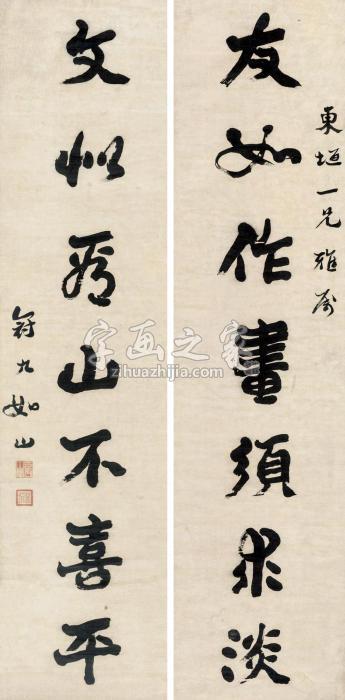 東垣一兄雅屬
友如作畫須求淡
文似看山不喜平
冠九如山
字画之家
zihuazhijia.com